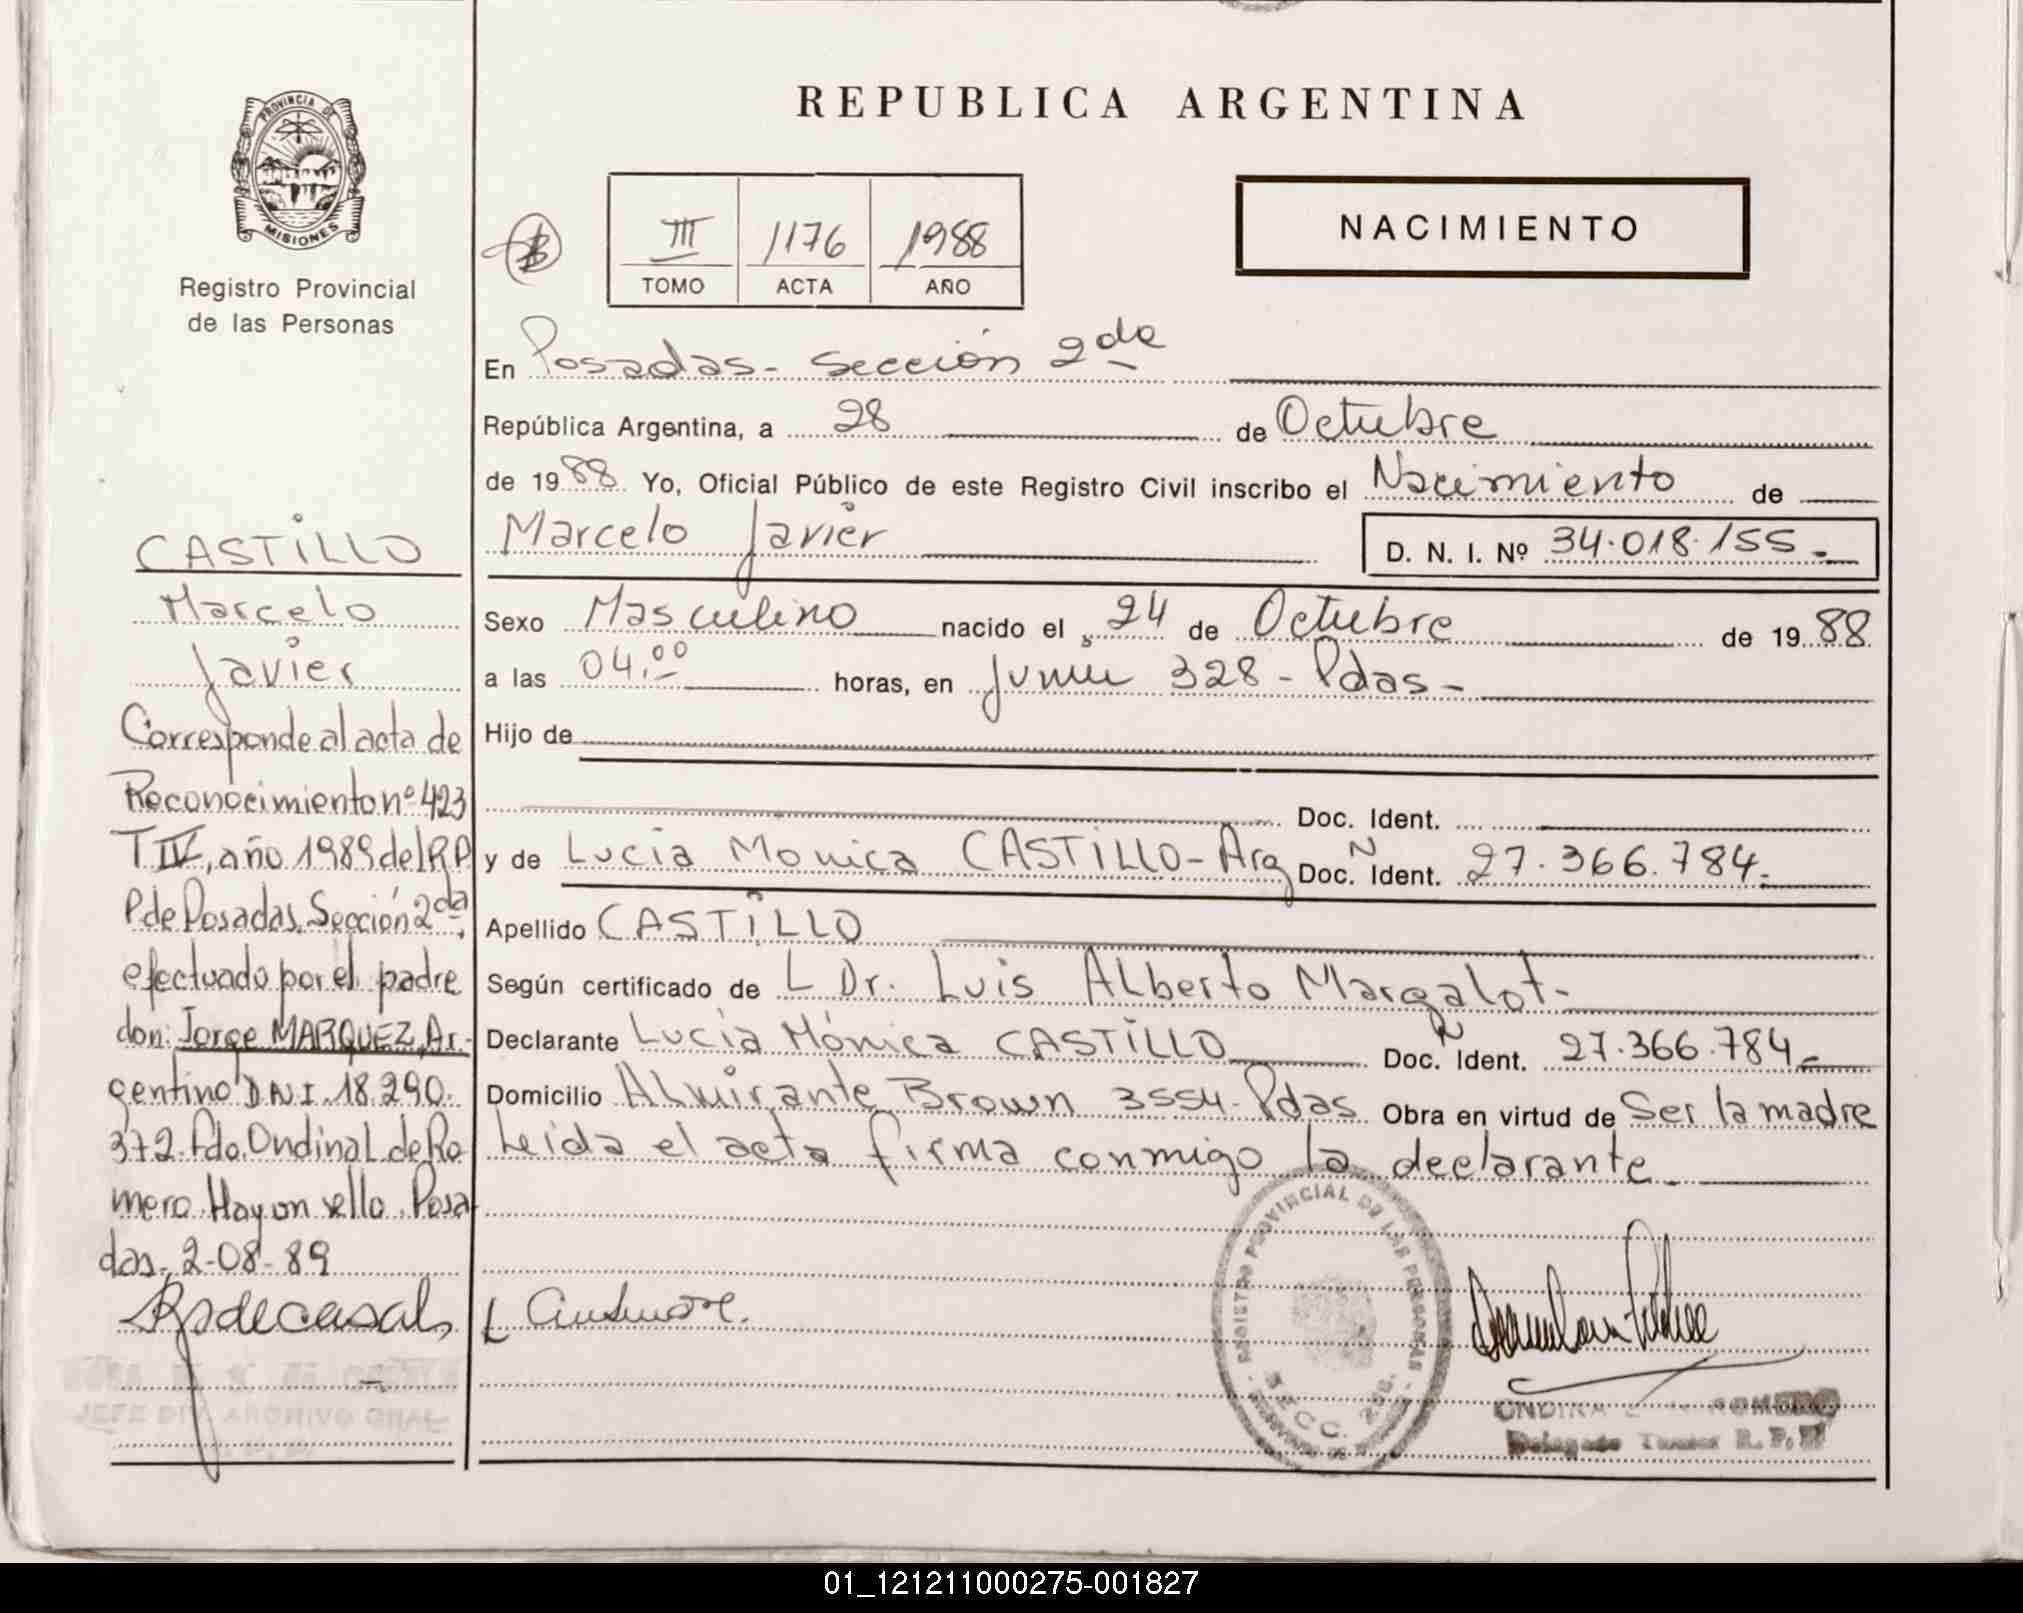 REPUBLICA ARGENTINA
PROVINCIA DE
MISIONES
Registro Provincial
de las Personas
III 1176 1988
TOMO ACTA AÑO
NACIMIENTO
En Posadas - Sección 2da
República Argentina, a 28 de Octubre
de 1988 Yo, Oficial Público de este Registro Civil inscribo el Nacimiento de
Marcelo Javier D. N. I. Nº 34.018.155.-
Sexo Masculino nacido el 24 de Octubre de 1988
a las 04.00 horas, en Junín 328 - Pdas -
Hijo de
Doc. Ident.
y de Lucia Monica CASTILLO - Arg Doc. N Ident. 27.366.784.-
Apellido CASTILLO
Según certificado de L Dr. Luis Alberto Margalot.-
Declarante Lucia Mónica CASTILLO Doc. N Ident. 27.366.784.-
Domicilio Almirante Brown 3554 - Pdas Obra en virtud de Ser la madre
Leida el acta firma conmigo la declarante.
CASTILLO
Marcelo
Javier
Corresponde al acta de
Reconocimiento nº 423
T IV, año 1989 del R.P.
P. de Posadas, Sección 2da,
efectuado por el padre
don: Jorge MARQUEZ, Ar-
gentino D.N.I. 18.290.
372. Fdo. Ondina L. de Ro
mero. Hay un sello. Posa
das, 2-08-89
JEFE DIV. ARCHIVO GRAL
REGISTRO PROVINCIAL DE LAS PERSONAS
SECC. 2da.
ROMERO
Delegado R. P. P.
01_121211000275-001827